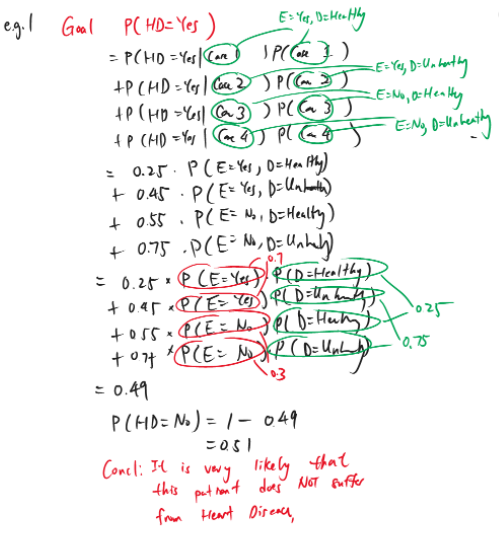 e.g.1 Goal P(HD=Yes)
E=Yes, D=Healthy
= P(HD=Yes | Case 1) P(Case 1)
E=Yes, D=Unhealthy
+ P(HD=Yes | Case 2) P(Case 2)
E=No, D=Healthy
+ P(HD=Yes | Case 3) P(Case 3)
E=No, D=Unhealthy
+ P(HD=Yes | Case 4) P(Case 4)
= 0.25 · P(E=Yes, D=Healthy)
+ 0.45 · P(E=Yes, D=Unhealthy)
+ 0.55 · P(E=No, D=Healthy)
+ 0.75 · P(E=No, D=Unhealthy)
0.7
= 0.25 * P(E=Yes) P(D=Healthy)
+ 0.45 * P(E=Yes) P(D=Unhealthy) 0.25
+ 0.55 * P(E=No) P(D=Healthy)
+ * P(E=No) P(D=Unhealthy) 0.75
0.3
= 0.49
P(HD=No) = 1 - 0.49
= 0.51
Concl: It is very likely that
this patient does NOT suffer
from Heart Disease,